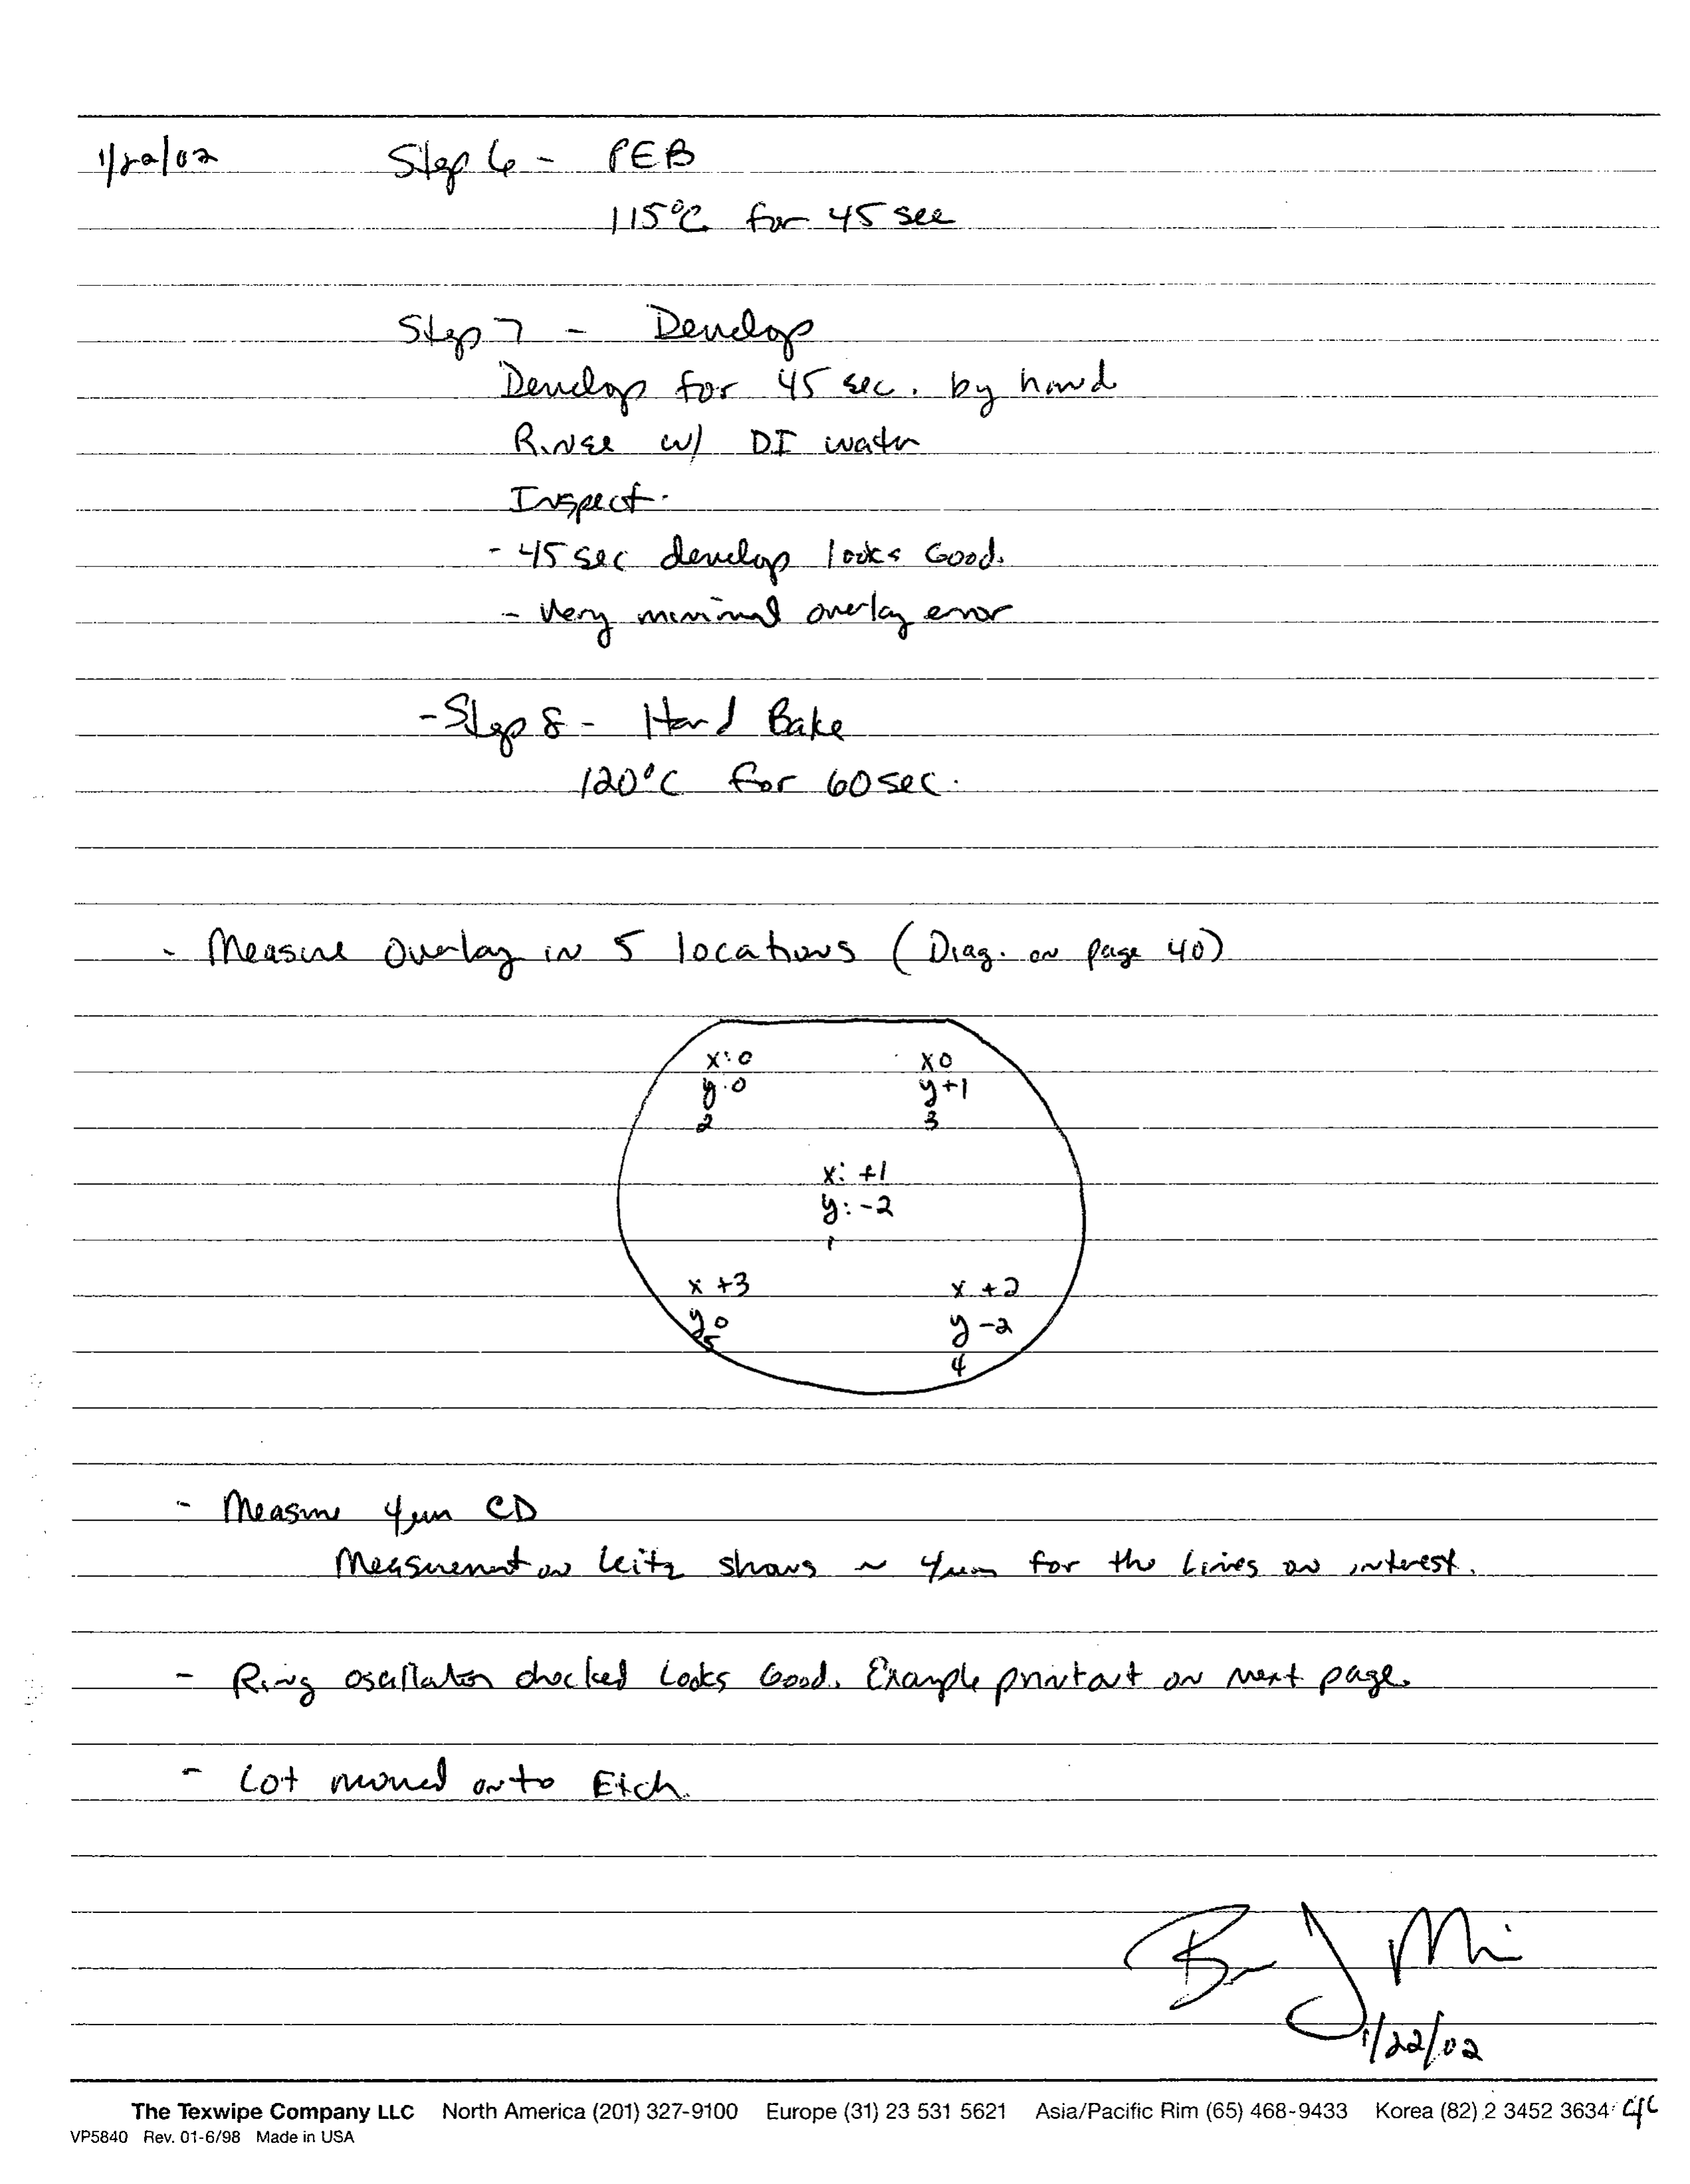 1/22/02 Step 6 - PEB
115°C for 45 sec
Step 7 - Develop
Develop for 45 sec. by hand
Rinse w/ DI water
Inspect.
- 45 sec develop looks Good.
- Very minimal overlay error
- Step 8 - Hard Bake
120°C for 60 sec.
- Measure Overlay in 5 locations (Diag. on page 40)
x: 0 x 0
y: 0 y +1
2 3
x: +1
y: -2
1
x +3 x +2
y 0 y -2
5 4
- Measure 4µm CD
Measurement on Leitz shows ~ 4µm for the Lines on interest.
- Ring oscillator checked Looks Good. Example printout on next page.
- Lot moved onto Etch.
1/22/02
The Texwipe Company LLC North America (201) 327-9100 Europe (31) 23 531 5621 Asia/Pacific Rim (65) 468-9433 Korea (82) 2 3452 3634
VP5840 Rev. 01-6/98 Made in USA